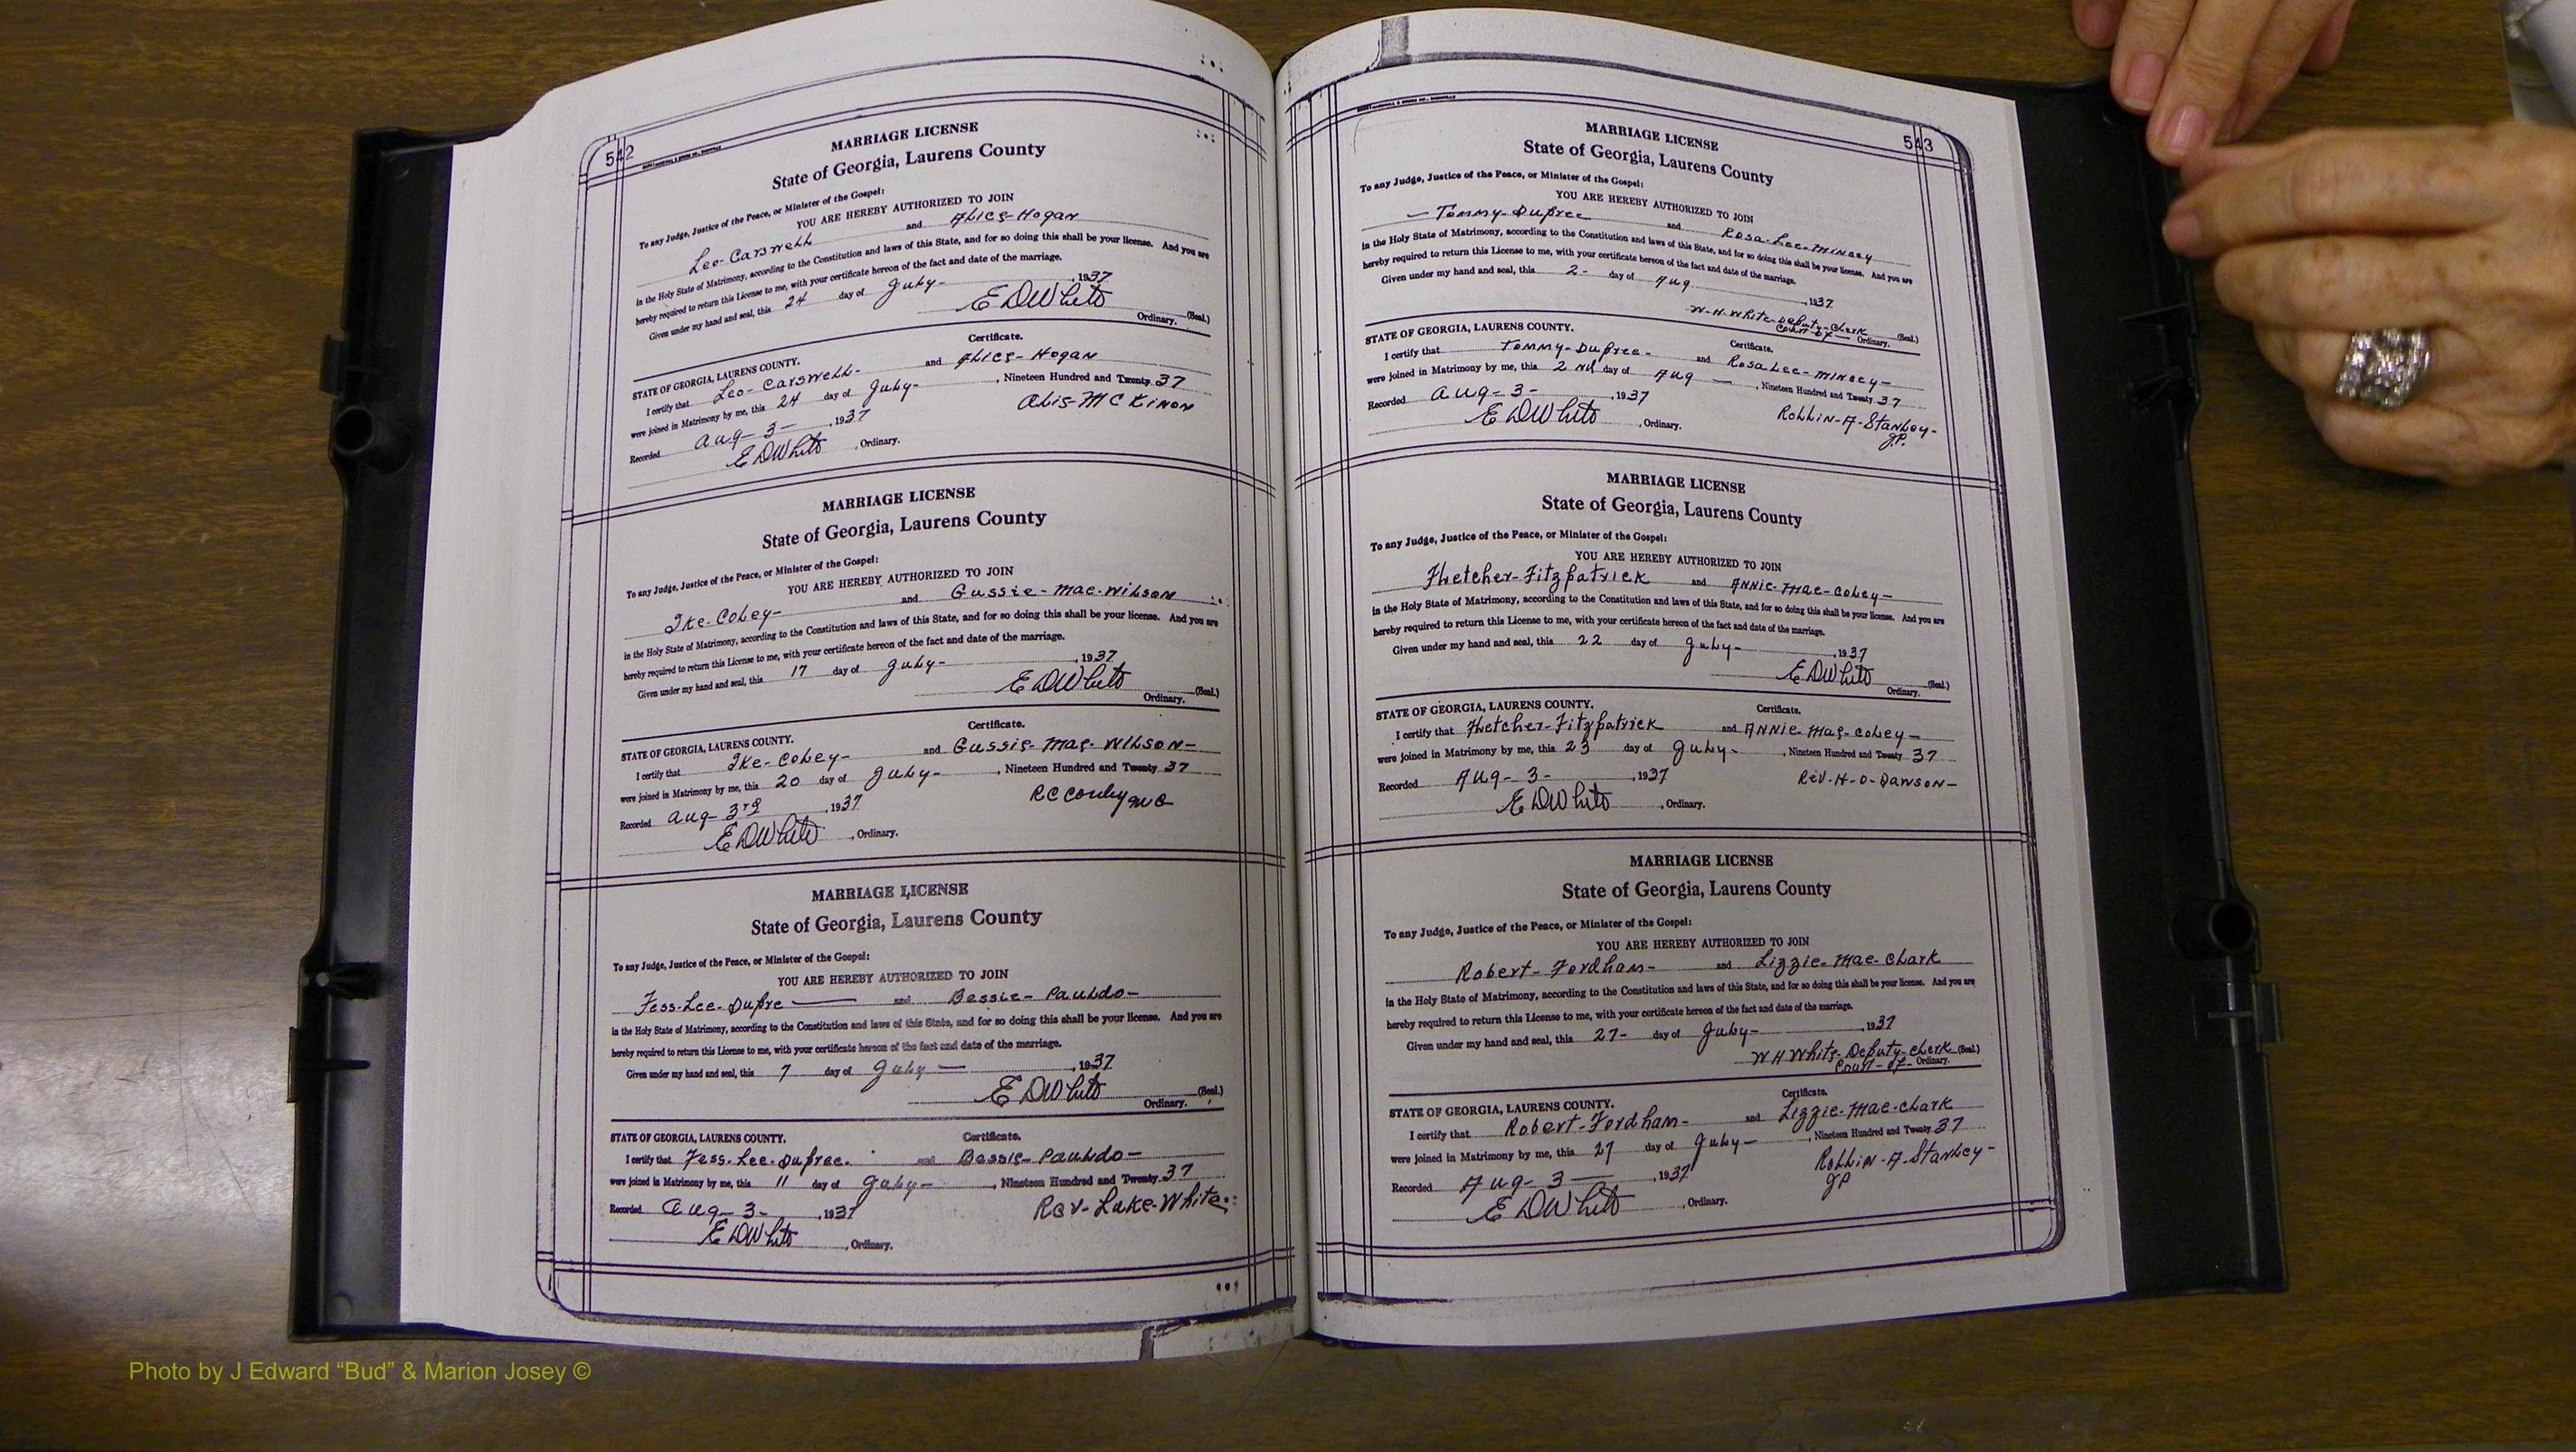 542
MARRIAGE LICENSE
State of Georgia, Laurens County
To any Judge, Justice of the Peace, or Minister of the Gospel:
YOU ARE HEREBY AUTHORIZED TO JOIN
Leo-Carswell and Alice-Hogan
in the Holy State of Matrimony, according to the Constitution and laws of this State, and for so doing this shall be your license. And you are
hereby required to return this License to me, with your certificate hereon of the fact and date of the marriage.
Given under my hand and seal, this 24 day of July- , 1937
E D White (Seal.)
Ordinary.
Certificate.
STATE OF GEORGIA, LAURENS COUNTY.
I certify that Leo-Carswell- and Alice-Hogan
were joined in Matrimony by me, this 24 day of July- , Nineteen Hundred and Twenty 37
Recorded Aug-3- , 1937
Alis-McKinon
E D White , Ordinary.
MARRIAGE LICENSE
State of Georgia, Laurens County
To any Judge, Justice of the Peace, or Minister of the Gospel:
YOU ARE HEREBY AUTHORIZED TO JOIN
Ike-Coley- and Gussie-Mae-Wilson
in the Holy State of Matrimony, according to the Constitution and laws of this State, and for so doing this shall be your license. And you are
hereby required to return this License to me, with your certificate hereon of the fact and date of the marriage.
Given under my hand and seal, this 17 day of July- , 1937
E D White (Seal.)
Ordinary.
Certificate.
STATE OF GEORGIA, LAURENS COUNTY.
I certify that Ike-Coley- and Gussie-Mae-Wilson-
were joined in Matrimony by me, this 20 day of July- , Nineteen Hundred and Twenty 37
Recorded Aug-3rd , 1937
R C
E D White , Ordinary.
MARRIAGE LICENSE
State of Georgia, Laurens County
To any Judge, Justice of the Peace, or Minister of the Gospel:
YOU ARE HEREBY AUTHORIZED TO JOIN
Jess-Lee-Dupre and Bessie-Pauldo-
in the Holy State of Matrimony, according to the Constitution and laws of this State, and for so doing this shall be your license. And you are
hereby required to return this License to me, with your certificate hereon of the fact and date of the marriage.
Given under my hand and seal, this 7 day of July- , 1937
E D White (Seal.)
Ordinary.
Certificate.
STATE OF GEORGIA, LAURENS COUNTY.
I certify that Jess-Lee-Dupree. and Bessie-Pauldo-
were joined in Matrimony by me, this 11 day of July- , Nineteen Hundred and Twenty 37
Recorded Aug-3- , 1937
Rev-Luke-White
E D White , Ordinary.
543
MARRIAGE LICENSE
State of Georgia, Laurens County
To any Judge, Justice of the Peace, or Minister of the Gospel:
YOU ARE HEREBY AUTHORIZED TO JOIN
-Tommy-Dupree and Rosa-Lee-Mincey
in the Holy State of Matrimony, according to the Constitution and laws of this State, and for so doing this shall be your license. And you are
hereby required to return this License to me, with your certificate hereon of the fact and date of the marriage.
Given under my hand and seal, this 2- day of Aug , 1937
W-H-White-Deputy-Clerk (Seal.)
Court-of- Ordinary.
STATE OF GEORGIA, LAURENS COUNTY.
Certificate.
I certify that Tommy-Dupree- and Rosa Lee-Mincey-
were joined in Matrimony by me, this 2nd day of Aug- , Nineteen Hundred and Twenty 37
Recorded Aug-3- , 1937
Rollin-A-Stanley-
J.P.
E D White , Ordinary.
MARRIAGE LICENSE
State of Georgia, Laurens County
To any Judge, Justice of the Peace, or Minister of the Gospel:
YOU ARE HEREBY AUTHORIZED TO JOIN
Fletcher-Fitzpatrick and Annie-Mae-Coley-
in the Holy State of Matrimony, according to the Constitution and laws of this State, and for so doing this shall be your license. And you are
hereby required to return this License to me, with your certificate hereon of the fact and date of the marriage.
Given under my hand and seal, this 22 day of July- , 1937
E D White (Seal.)
Ordinary.
STATE OF GEORGIA, LAURENS COUNTY.
Certificate.
I certify that Fletcher-Fitzpatrick and Annie-Mae-Coley-
were joined in Matrimony by me, this 23 day of July- , Nineteen Hundred and Twenty 37
Recorded Aug-3- , 1937
Rev-H-O-Dawson-
E D White , Ordinary.
MARRIAGE LICENSE
State of Georgia, Laurens County
To any Judge, Justice of the Peace, or Minister of the Gospel:
YOU ARE HEREBY AUTHORIZED TO JOIN
Robert-Fordham- and Lizzie-Mae-Clark
in the Holy State of Matrimony, according to the Constitution and laws of this State, and for so doing this shall be your license. And you are
hereby required to return this License to me, with your certificate hereon of the fact and date of the marriage.
Given under my hand and seal, this 27- day of July- , 1937
W H White-Deputy-Clerk (Seal.)
Court-of- Ordinary.
Certificate.
STATE OF GEORGIA, LAURENS COUNTY.
I certify that Robert-Fordham- and Lizzie-Mae-Clark
were joined in Matrimony by me, this 27 day of July- , Nineteen Hundred and Twenty 37
Recorded Aug-3- , 1937
Rollin-A-Stanley-
JP
E D White , Ordinary.
Photo by J Edward “Bud” & Marion Josey ©